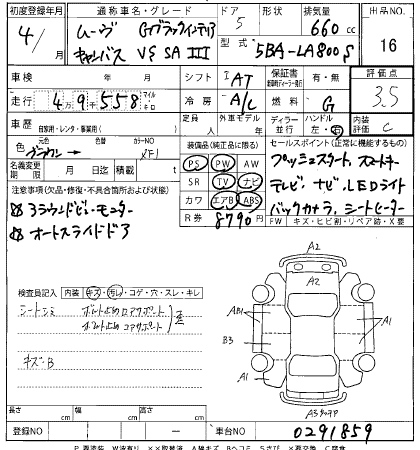 初度登録年月 通称車名・グレード ドア 形状 排気量 出品NO
4/ ムーヴ Gブラックインテリア 5 660 cc
キャンバス VS SA III 型式 5BA-LA800S 16
車検 年 月 シフト I AT 保証書 有・無 評価点
走行 4万9千558 マイル キロ 冷房 A/C 燃料 G 3.5
車歴 自家用・レンタ・事業用( ) 定員 人 外車モデル 年 ディーラー 並行 ハンドル 左・右 内装評価 C
色 ブラウン 元色 色替 カラーNO X
装備品(純正品に限る) セールスポイント(正常に機能するもの)
名義変更期限 月 日 積載 t
PS PW AW プッシュスタート、スマートキー
SR TV ナビ テレビ、ナビ、LEDライト
カワ エアB ABS バックカメラ、シートヒーター
R券 8790 円 FW キズ・ヒビ割・リペア跡・X要
注意事項(欠品・修復・不具合箇所および状態)
3ラウンドビューモニター
オートスライドドア
検査員記入 内装 キズ・汚レ・コゲ・穴・スレ・キレ
シートシミ ボルト止めロアサポート
ボルト止めコアサポート
歪
キズ・B
A2
A2
AB1
B3
A1
A1
A3
長さ cm 幅 cm 高さ cm
登録NO ー 車台NO 0291859